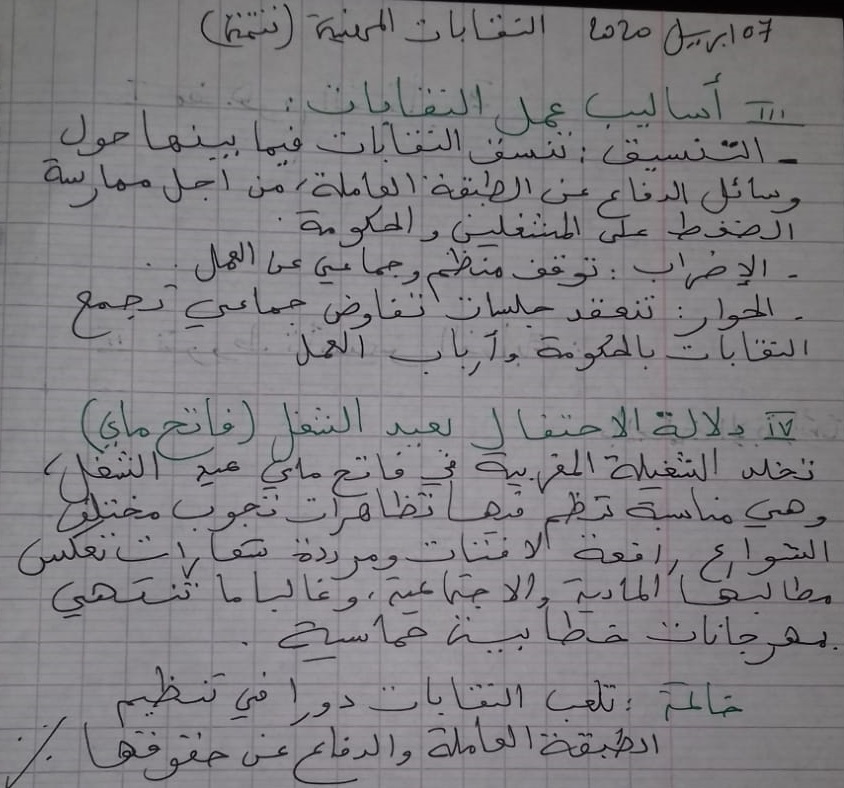 07 ابريل 2020 النقابات المهنية (تتمة)
III أساليب عمل النقابات :
- التنسيق : تنسق النقابات فيما بينها حول
وسائل الدفاع عن الطبقة العاملة، من أجل ممارسة
الضغط على المشغلين والحكومة .
- الإضراب : توقف منظم وجماعي عن العمل
- الحوار : تنعقد جلسات تفاوض جماعي تجمع
النقابات بالحكومة وأرباب العمل
IV دلالة الاحتفال بعيد الشغل (فاتح ماي)
تخلد الشغيلة المغربية في فاتح ماي عيد الشغل،
وهي مناسبة تنظم فيها تظاهرات تجوب مختلف
الشوارع رافعة لافتات ومرددة شعارات تعكس
مطالبها المادية والاجتماعية، وغالبا ما تنتهي
بمهرجانات خطابية حماسية .
خاتمة : تلعب النقابات دورا في تنظيم
الطبقة العاملة والدفاع عن حقوقها ./.